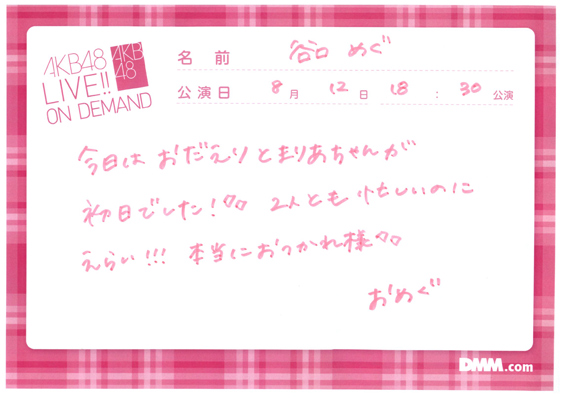 AKB48
LIVE!!
ON DEMAND
AKB
48
名 前 谷口 めぐ
公演日 8月 12日 18:30公演
今日は おだえりとまりあちゃんが
初日でした!♡♡ 2人とも 忙しいのに
えらい!!! 本当におつかれ様♡♡
おめぐ
DMM.com